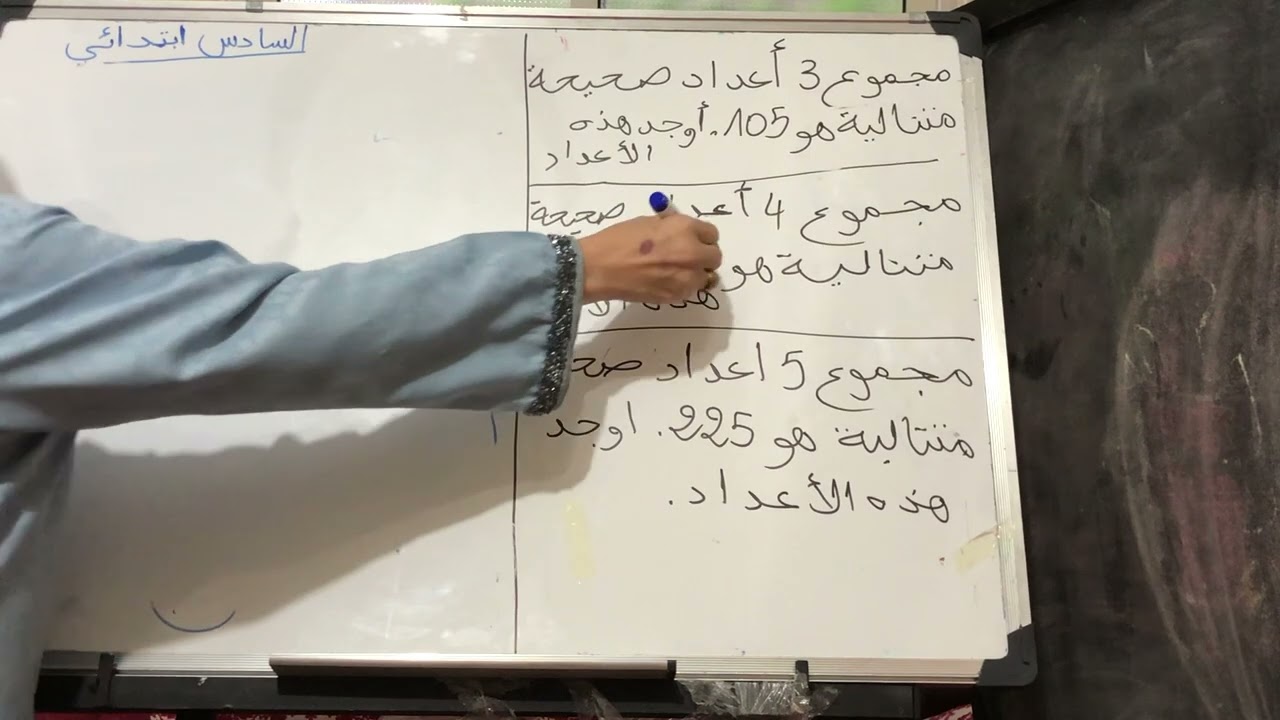 السادس ابتدائي
مجموع 3 أعداد صحيحة
متتالية هو 105. أوجد هذه
الأعداد
مجموع 4 صحيحة
متتالية هو
هذه
مجموع 5 اعداد
متتالية هو 225. اوجد
هذه الأعداد.